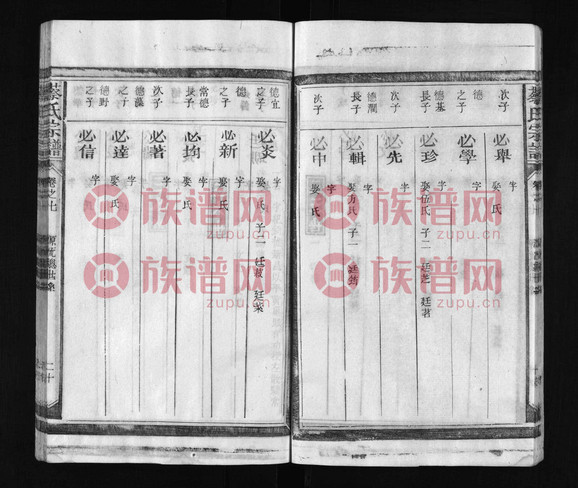 次子
必舉 字
之子
必學 字
德基
長子
必珍 字
娶伍氏 子二 廷芝 廷著
次子
必先 字
德潤
長子
必輯 字
次子
必中 字
娶 氏
德宜
必炎 字
娶 氏 子二 廷 廷
德義
之子
必新 字
娶 氏
常德
長子
必均 字
娶 氏
次子
必著 字
德藻
之子
必達 字
娶 氏
德野
之子
必信 字
綦氏宗譜
二十
族谱网
zupu.cn
族谱网
zupu.cn
族谱网
zupu.cn
族谱网
zupu.cn